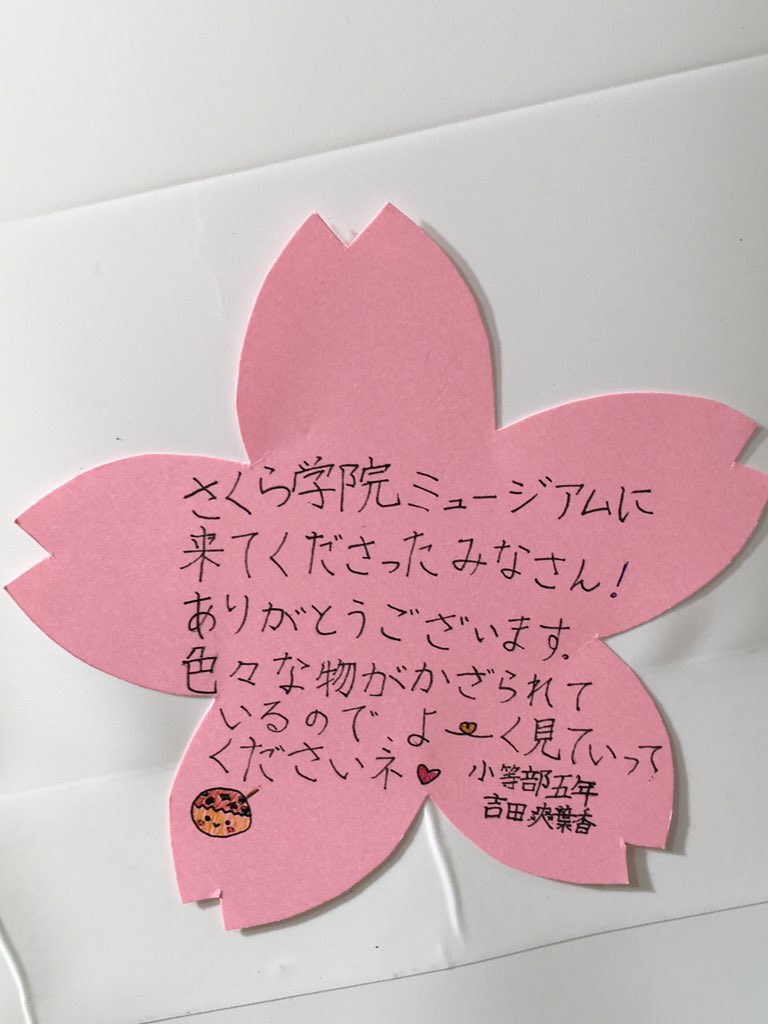 さくら学院ミュージアムに
来てくださったみなさん!
ありがとうございます。
色々な物がかざられて
いるので、よーく見ていって
くださいネ♥
小等部五年
吉田爽葉香